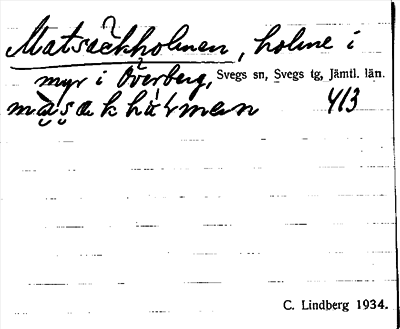 Matsäckholmen, holme i
myr i Överberg, Svegs sn, Svegs tg, Jämtl. län.
màsækhàɽmen 413
C. Lindberg 1934.